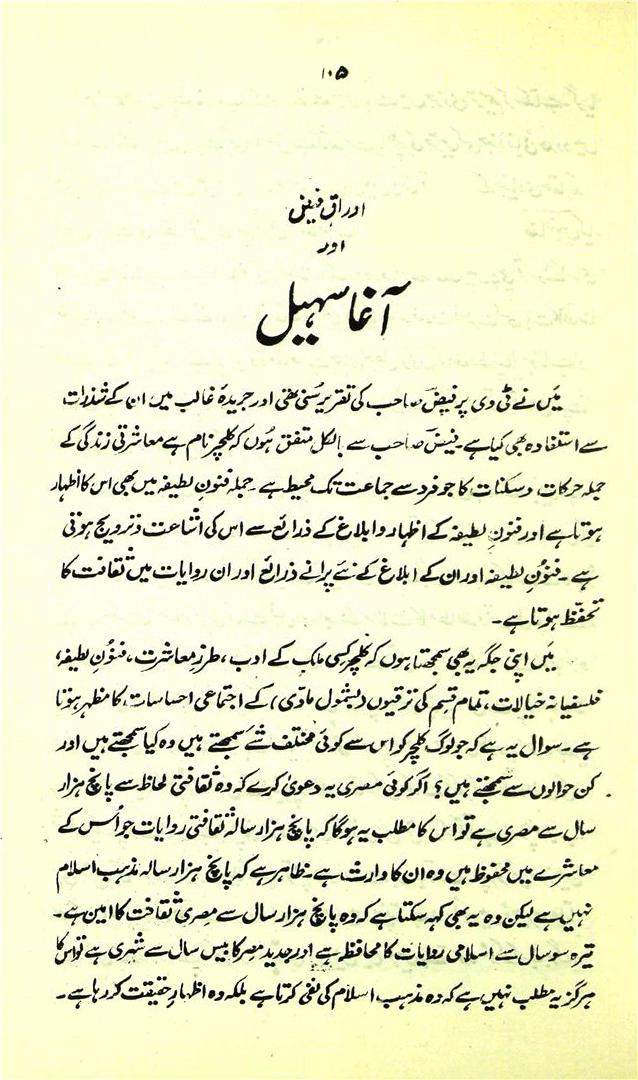 ۱۰۵
اوراقِ فیض
اور
آغا سہیل
میں نے ٹی وی پر فیضؔ صاحب کی تقریر سُنی تھی اور جریدہ غالب میں ان کے شذرات
سے استفادہ بھی کیا ہے۔ فیضؔ صاحب سے بالکل متفق ہوں کہ کلچر نام ہے معاشرتی زندگی کے
جملہ حرکات و سکنات کا جو فرد سے جماعت تک محیط ہے۔ جملہ فنونِ لطیفہ میں بھی اس کا اظہار
ہوتا ہے اور فنونِ لطیفہ کے اظہار و ابلاغ کے ذرائع سے اس کی اشاعت و ترویج ہوتی
ہے۔ فنونِ لطیفہ اور ان کے ابلاغ کے نئے پرانے ذرائع اور ان روایات میں ثقافت کا
تحفّظ ہوتا ہے۔
میں اپنی جگہ یہ بھی سمجھتا ہوں کہ کلچر کسی ملک کے ادب، طرزِ معاشرت، فنونِ لطیفہ،
فلسفیانہ خیالات، تمام قسم کی ترقیوں (بشمول مادّی) کے اجتماعی احساسات، کا مظہر ہوتا
ہے۔ سوال یہ ہے کہ جو لوگ کلچر کو اس سے کوئی مختلف شے سمجھتے ہیں وہ کیا سمجھتے ہیں اور
کن حوالوں سے سمجھتے ہیں؟ اگر کوئی مصری یہ دعویٰ کرے کہ وہ ثقافتی لحاظ سے پانچ ہزار
سال سے مصری ہے تو اس کا مطلب یہ ہوگا کہ پانچ ہزار سالہ ثقافتی روایات جو اُس کے
معاشرے میں محفوظ ہیں وہ ان کا وارث ہے۔ ظاہر ہے کہ پانچ ہزار سالہ مذہب اسلام
نہیں ہے لیکن وہ یہ بھی کہہ سکتا ہے کہ وہ پانچ ہزار سال سے مصری ثقافت کا امین ہے۔
تیرہ سو سال سے اسلامی روایات کا محافظ ہے اور جدید مصر کا بیس سال سے شہری ہے تو اس کا
ہرگز یہ مطلب نہیں ہے کہ وہ مذہب اسلام کی نفی کرتا ہے بلکہ وہ اظہارِ حقیقت کر رہا ہے۔